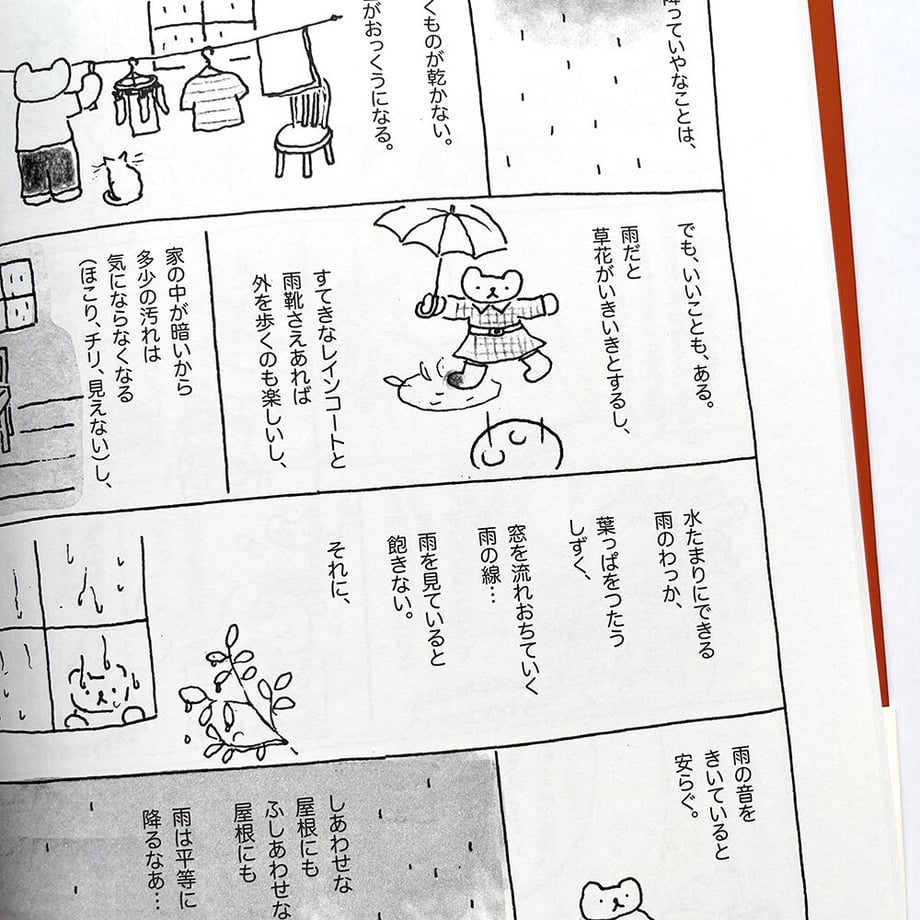 降っていやなことは、
くものが乾かない。
がおっくうになる。
でも、いいことも、ある。
雨だと
草花がいきいきとするし、
すてきなレインコートと
雨靴さえあれば
外を歩くのも楽しいし、
家の中が暗いから
多少の汚れは
気にならなくなる
（ほこり、チリ、見えない）し、
水たまりにできる
雨のわっか、
葉っぱをつたう
しずく、
窓を流れおちていく
雨の線…
雨を見ていると
飽きない。
それに、
雨の音を
きいていると
安らぐ。
しあわせな
屋根にも
ふしあわせな
屋根にも
雨は平等に
降るなあ…